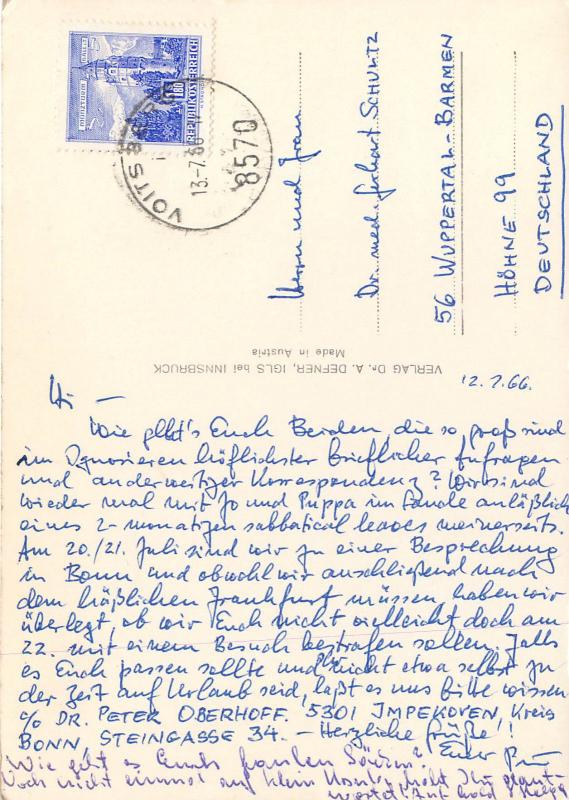 REPUBLIK ÖSTERREICH
1.80
VOITSBERG
13.-7.66
8570
Herrn und Frau
Dr. med. Gerhart SCHULTZ
56 WUPPERTAL-BARMEN
HÖHNE 99
DEUTSCHLAND
VERLAG Dr. A. DEFNER, IGLS bei INNSBRUCK
Made in Austria
12.7.66.
Hi —
Wie geht's Euch Beiden, die so groß sind
im Ignorieren höflichster brieflicher Anfragen
und anderweitiger Korrespondenz? Wir sind
wieder mal mit Jo und Puppa im Lande anläßlich
eines 2-monatigen sabbatical leaves meinerseits.
Am 20./21. Juli sind wir zu einer Besprechung
in Bonn und obwohl wir anschließend nach
dem häßlichen Frankfurt müssen haben wir
überlegt, ob wir Euch nicht vielleicht doch am
22. mit einem Besuch bestrafen sollen. Falls
es Euch passen sollte und Ihr nicht etwa selbst zu
der Zeit auf Urlaub seid, laßt es uns bitte wissen
c/o DR. PETER OBERHOFF. 5301 IMPEKOVEN, Kreis
BONN STEINGASSE 34. — Herzliche Grüße!
Euer
Wie geht es Euch faulen
Noch nicht einmal auf habt Ihr geant-
wortet! Auf bald! Helga